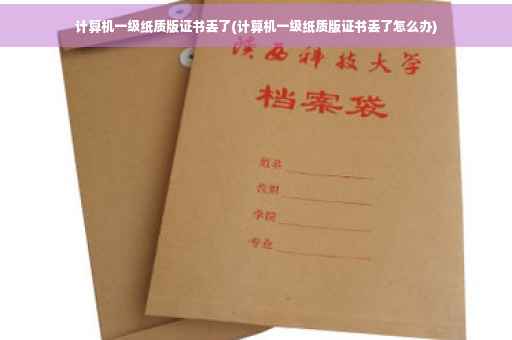 计算机一级纸质版证书丢了(计算机一级纸质版证书丢了怎么办)
陕西科技大学
档案袋
姓名
学院
专业